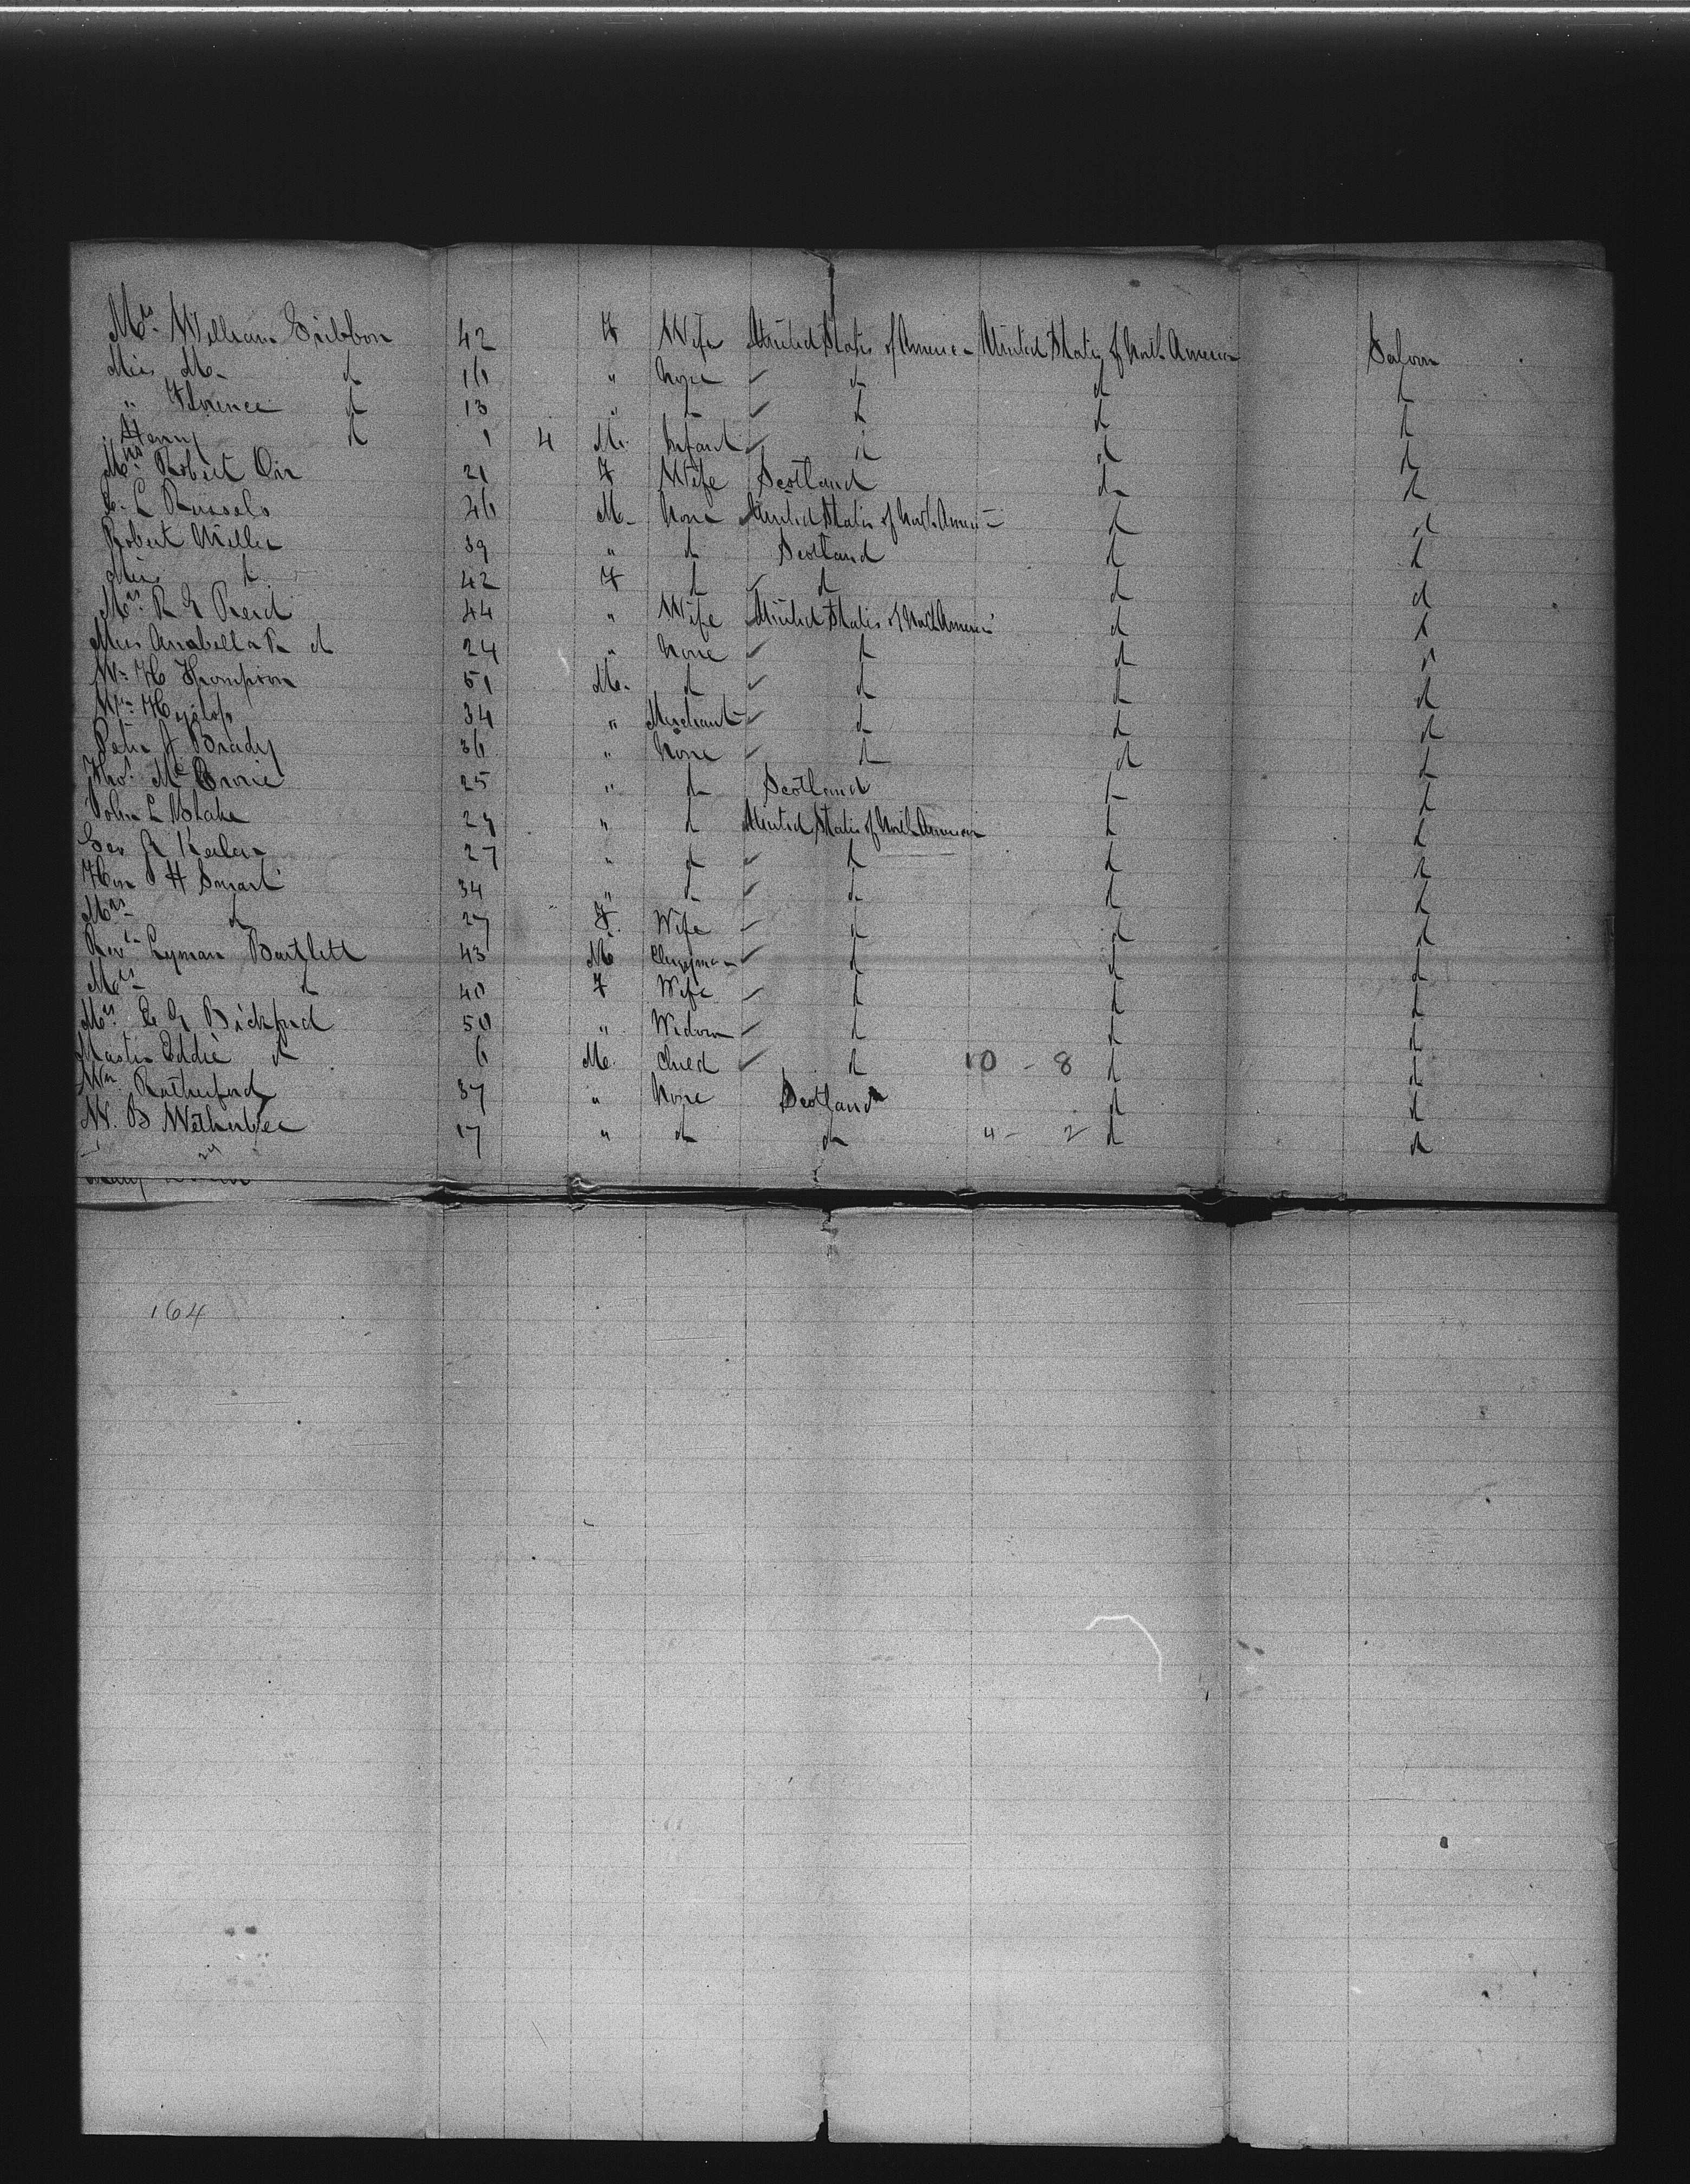 Mrs. William Gribbon 42 F Wife United States of America United States of North America Saloon
Miss M. d 16 " None ✓ d d d
" Florence d 13 " d ✓ d d d
" Henry d 1 4 M. Infant ✓ d d d
Mrs. Robert Orr 21 F Wife Scotland d d
C. L Russels 46 M. None United States of North America d d
Robert Miller 39 " d Scotland d d
Miss d 42 F d ✓ d d d
Mrs. R G Reid 44 " Wife United States of North America d d
Miss Anabella d 24 " None ✓ d d d
Wm H Thompson 51 M. d ✓ d d d
Wm Hyslop 34 " Merchant ✓ d d d
Peter A Brady 36 " None ✓ d d d
Thos. McCrorie 25 " d Scotland d d
John L Blake 29 " d United States of North America d d
Geo 27 " d ✓ d d d
Hon H Smart 34 " d ✓ d d d
Mrs d 27 F. Wife ✓ d d d
Revd Lyman Bartlett 43 M Clergyman ✓ d d d
Mrs d 40 F Wife ✓ d d d
Mrs. E G Bickford 50 " Widow ✓ d d d
Master Eddie d 6 M. Child ✓ d 10 - 8 d d
Wm Rutherford 37 " None Scotland d d
W. B Wetherbee 17 " d d 4 - 2 d d
164